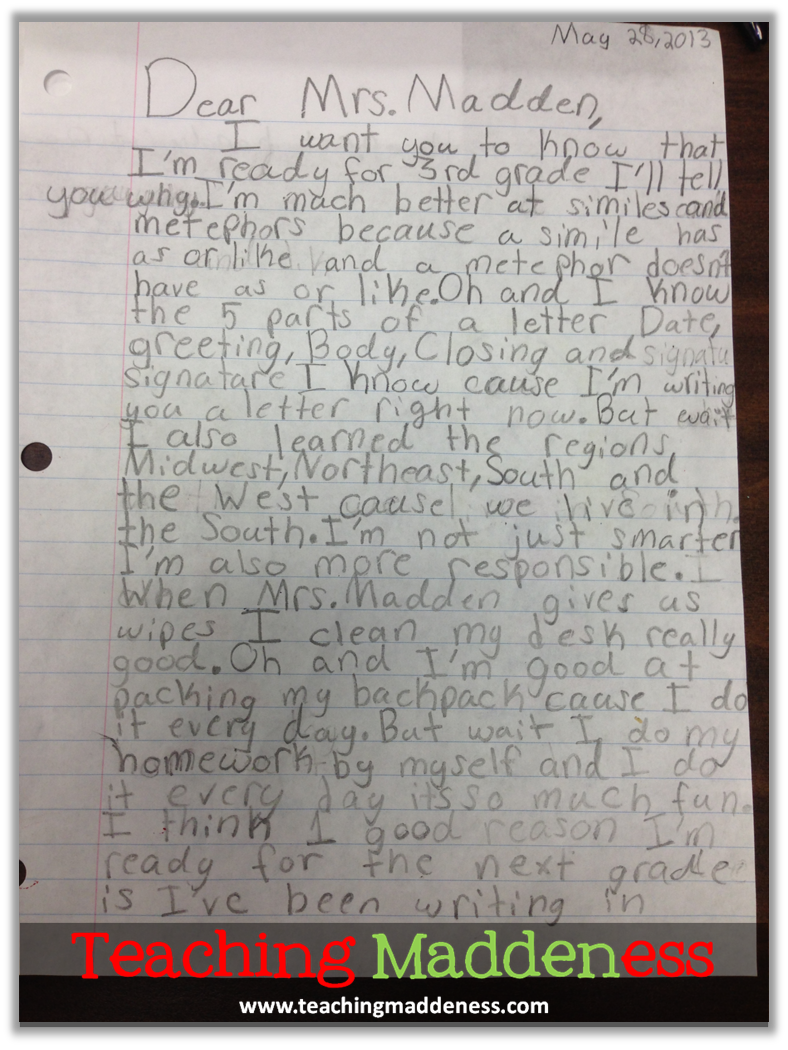 May 28, 2013
Dear Mrs. Madden,
I want you to know that
I'm ready for 3rd grade I'll tell
you why. I'm mach better at similes and
metephors because a simile has
as or like and a metephor doesn't
have as or like. Oh and I know
the 5 parts of a letter Date,
greeting, Body, Closing and signatu
signatare I know cause I'm writing
you a letter right now. But wait
I also learned the regions
Midwest, Northeast, South and
the West cause we live in
the South. I'm not just smarter
I'm also more responsible. I
When Mrs. Madden gives as
wipes I clean my desk really
good. Oh and I'm good at
packing my backpack cause I do
it every day. But wait I do my
homework by myself and I do
it every day its so much fun.
I think 1 good reason I'm
ready for the next grade
is I've been writing in
Teaching Maddeness
www.teachingmaddeness.com